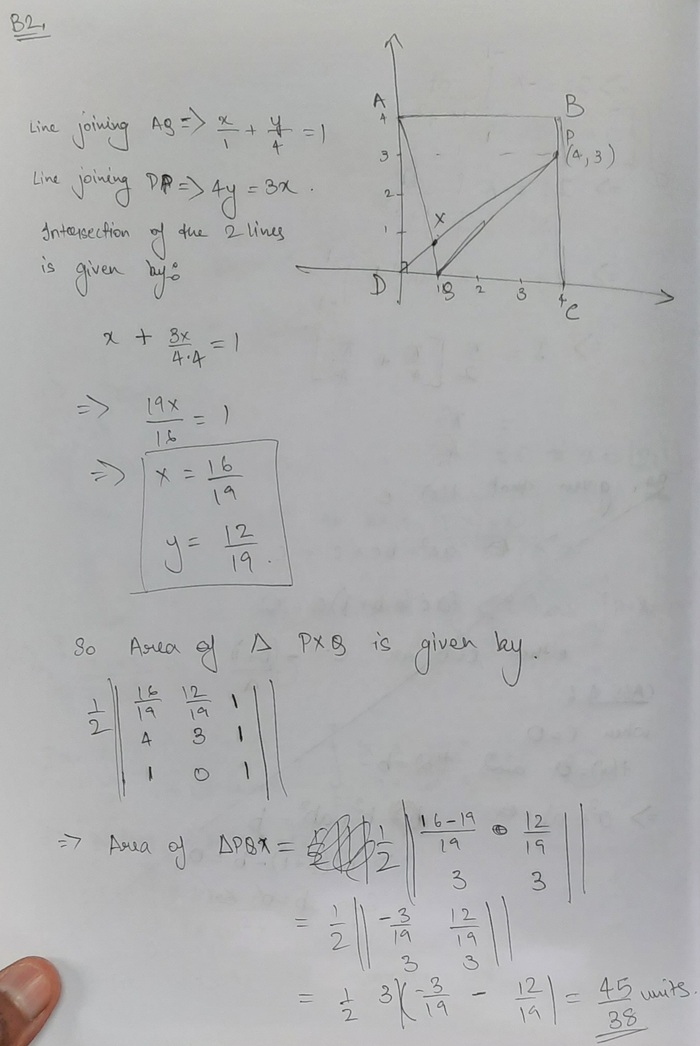 B2.
A
4
B
P
(4, 3)
3
2
X
1
D
1
Q
2
3
4
C
Line joining AQ => x/1 + y/4 = 1
Line joining DP => 4y = 3x.
Intersection of the 2 lines
is given by:
x + 3x/4·4 = 1
=> 19x/16 = 1
=> x = 16/19
y = 12/19.
So Area of Δ PXQ is given by.
1/2 || 16/19 12/19 1 ||
4 3 1
1 0 1
=> Area of ΔPQX = 1/2 || 16-19/19 12/19 ||
3 3
= 1/2 || -3/19 12/19 ||
3 3
= 1/2 3 |(-3/19 - 12/19| = 45/38 units.